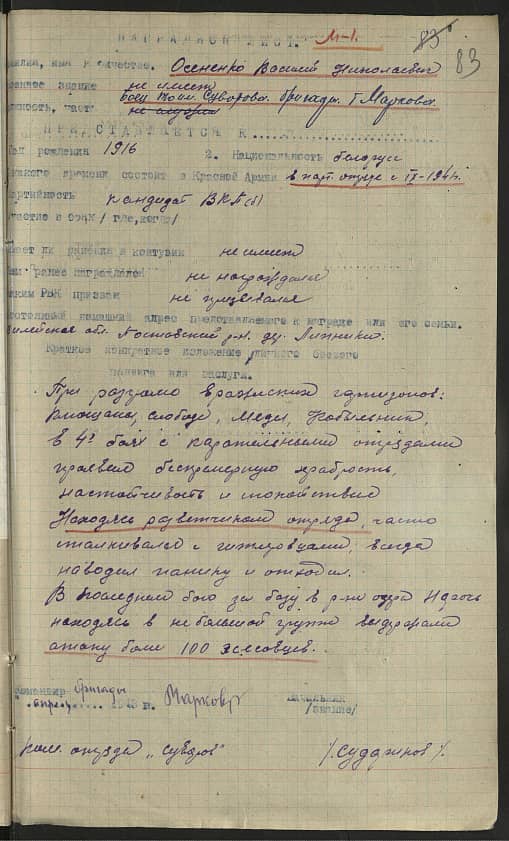 НАГРАДНОЙ ЛИСТ. М-1. 83
83
милия, имя и отчество. Осененко Василий Николаевич
оенное звание не имеет
боец Суворова. бригады. Т. Маркова
лжность, часть не служил
ПРЕДСТАВЛЯЕТСЯ К
од рождения 1916 2. Национальность белорус
акого времени состоит в Красной Армии в парт. отряде с IX-1941.
артийность кандидат ВКП(б)
частие в боях /где, когда/
меет ли ранения и контузии не имеет
ем ранее награждался не награждался
аким РВК призван не призывался
остоянный домашний адрес представляемого к награде или его семьи.
Вилейская обл. Поставский р-н. дер.
Краткое конкретное изложение личного боевого
подвига или заслуга.
При разгроме вражеских гарнизонов:
слобода, Кобыльник,
в 4х боях с карательными отрядами
проявил беспримерную храбрость,
настойчивость и спокойствие
Находясь разветчиком отряда, часто
сталкивался с гитлеровцами, всегда
наводил панику и отходил.
В последнем бою за базу в р-не озера Нарочь
находясь в небольшой группе выдержали
атаку более 100 эсесовцев.
омандир бригады Марков Начальник
1943 г. /звание/
ком. отряда "Суворов"